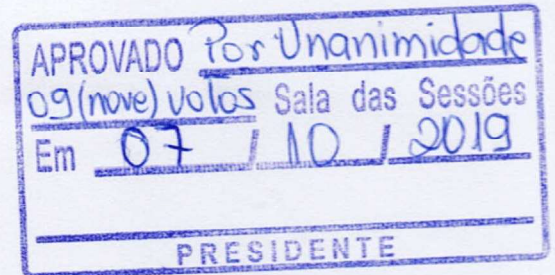 APROVADO Por Unanimidade
09 (nove) votos Sala das Sessões
Em 07 / 10 / 2019
PRESIDENTE